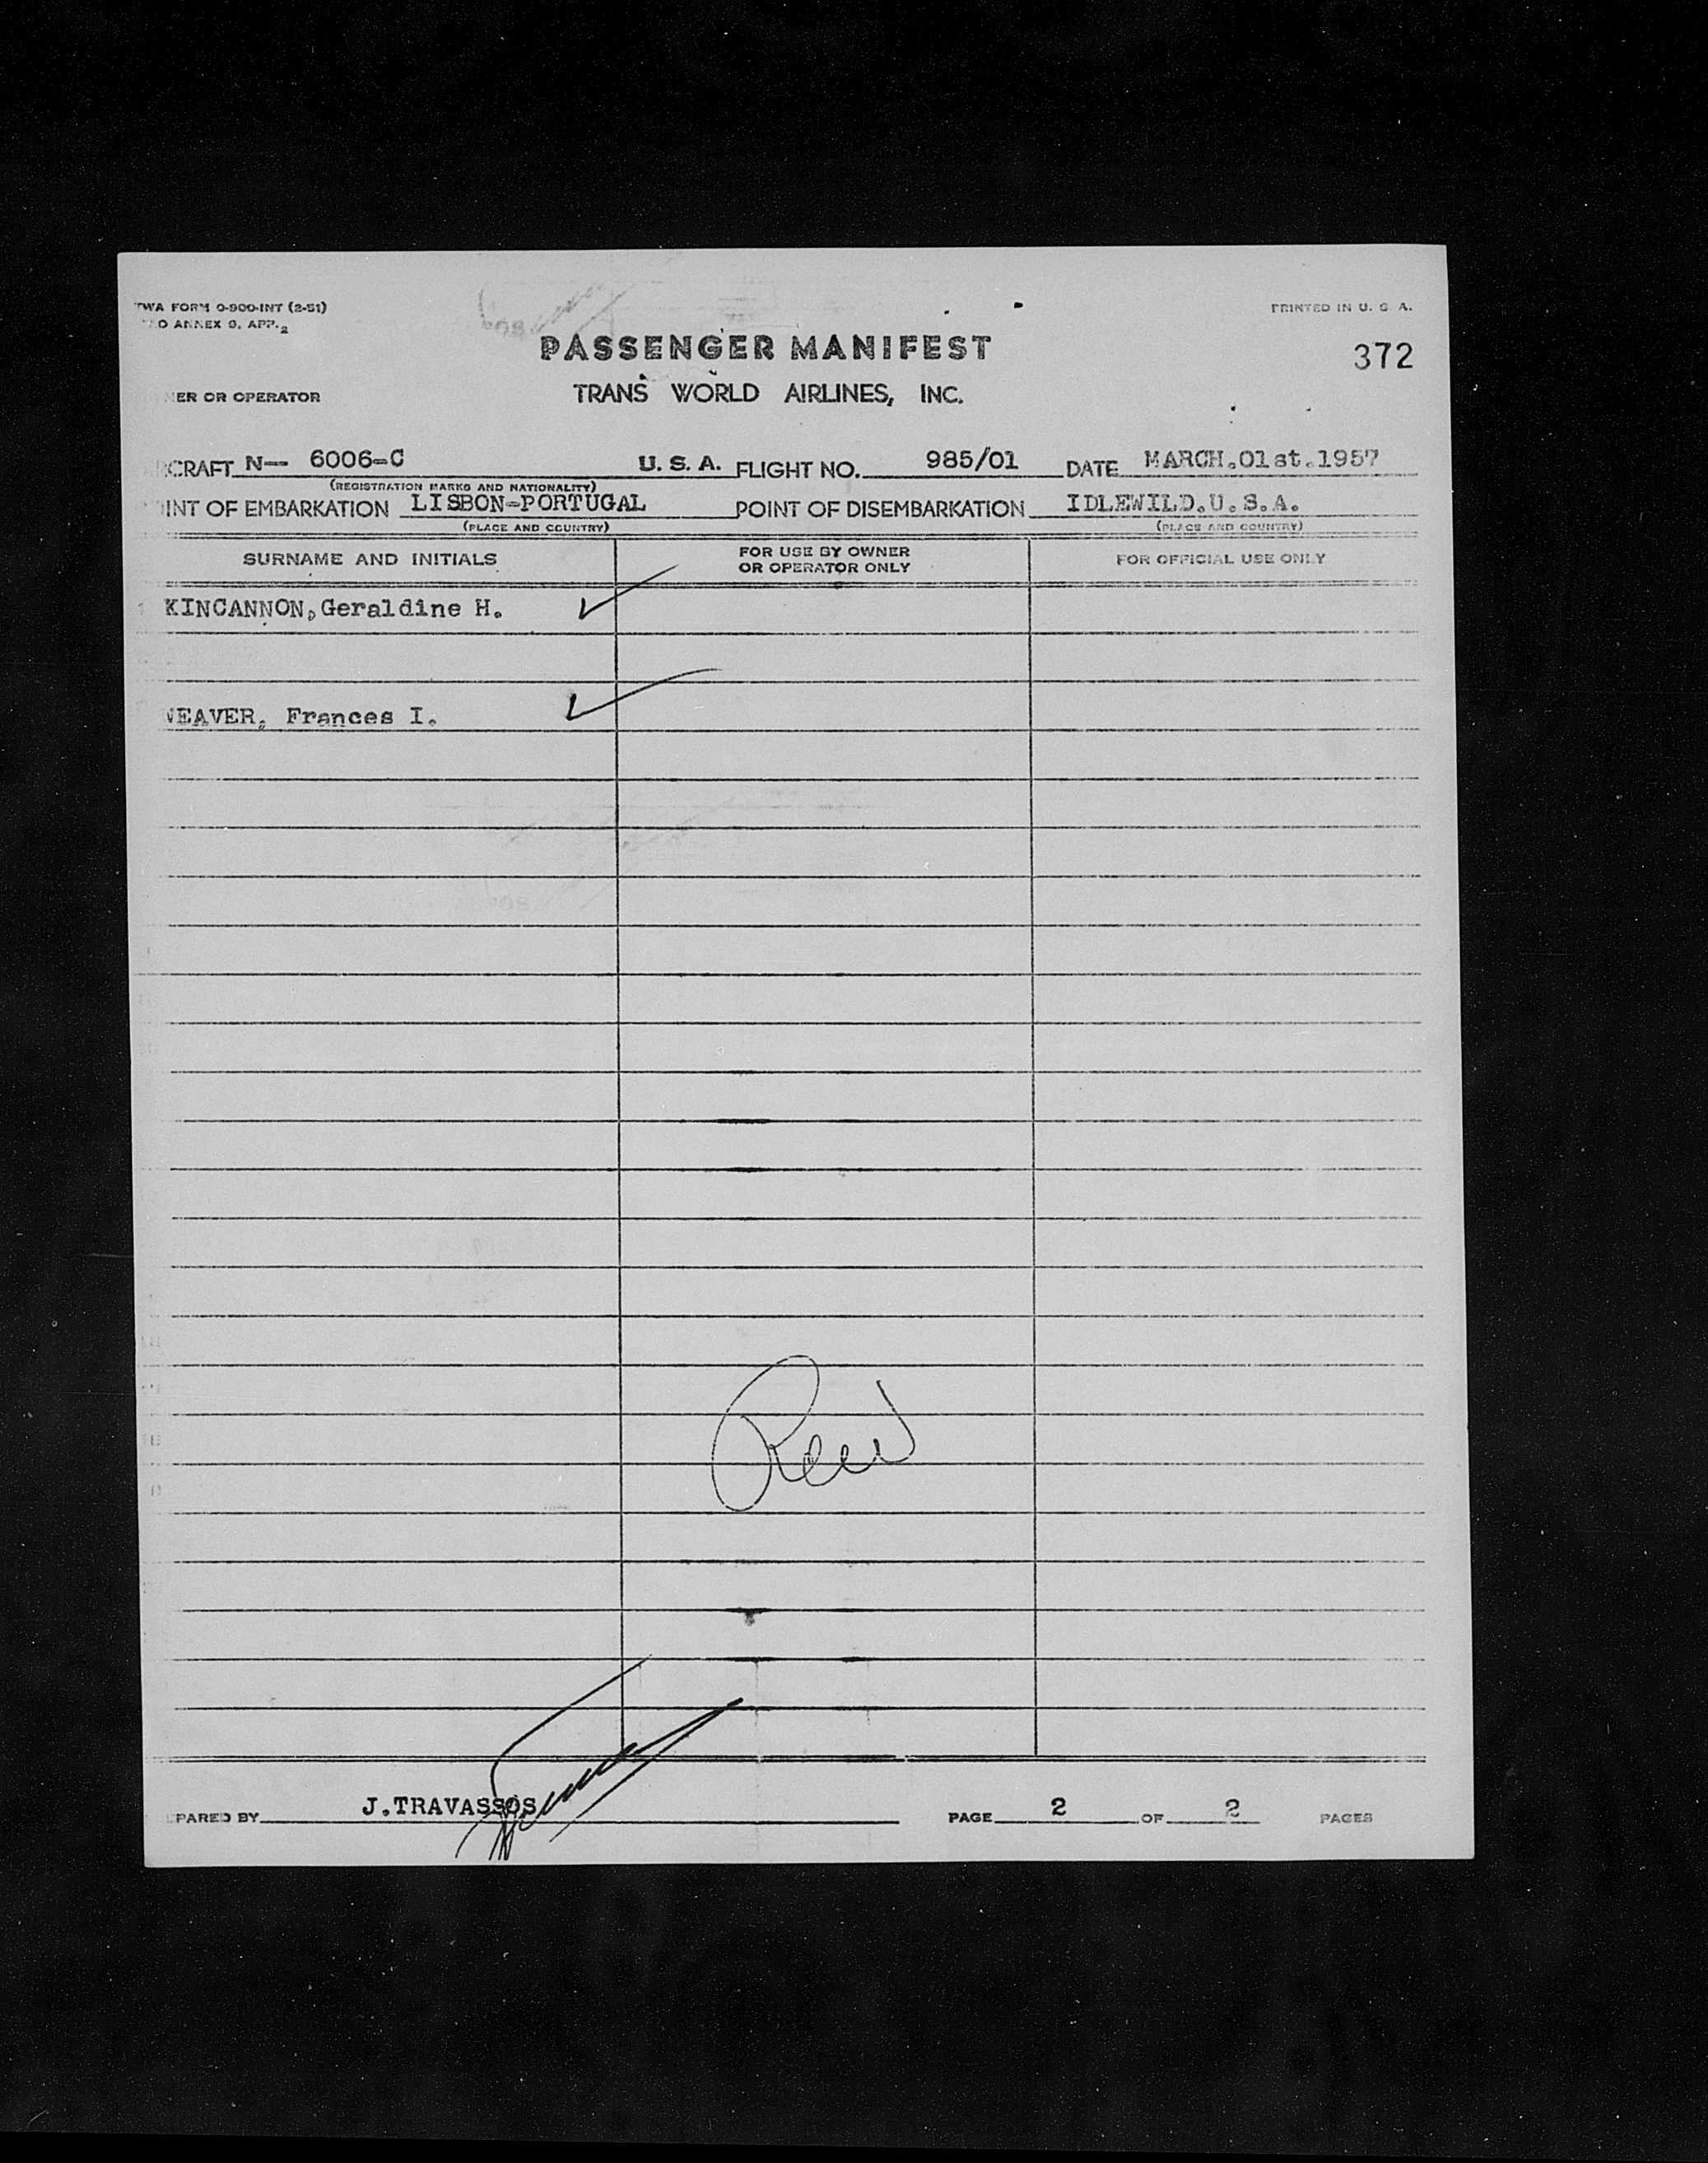 TWA FORM O-900-INT (2-51)
PRINTED IN U. S. A.
O ANNEX 9. APP. 2
PASSENGER MANIFEST
372
ER OR OPERATOR
TRANS WORLD AIRLINES, INC.
CRAFT N— 6006-C U. S. A. FLIGHT NO. 985/01 DATE MARCH.01st.1957
(REGISTRATION MARKS AND NATIONALITY)
INT OF EMBARKATION LISBON-PORTUGAL POINT OF DISEMBARKATION IDLEWILD.U.S.A.
(PLACE AND COUNTRY) (PLACE AND COUNTRY)
SURNAME AND INITIALS FOR USE BY OWNER OR OPERATOR ONLY FOR OFFICIAL USE ONLY
KINCANNON, Geraldine H.
WEAVER, Frances I.
PARED BY J.TRAVASSOS PAGE 2 OF 2 PAGES